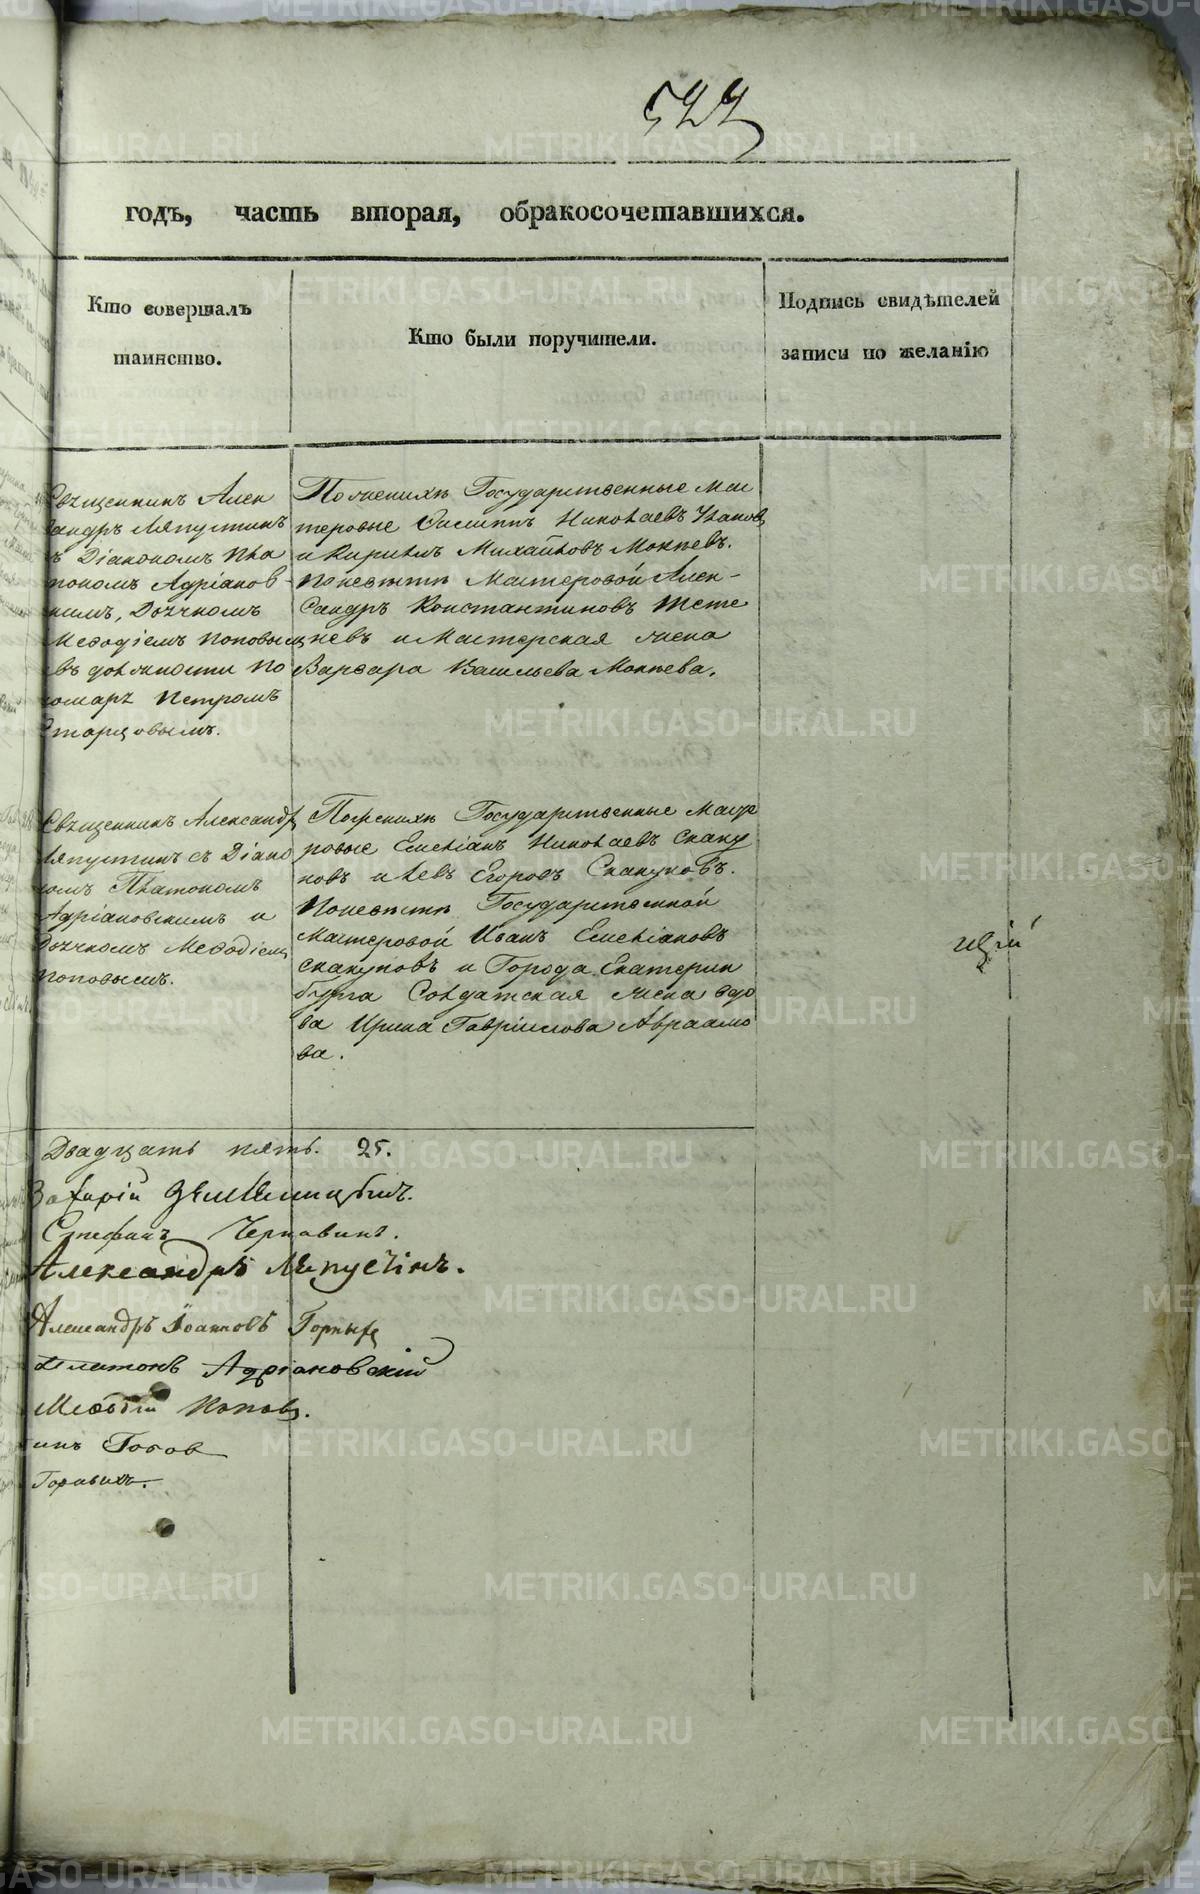 522
годъ, часть вторая, обракосочетавшихся.
Кто совершалъ
таинство.
Кто были поручители.
Подпись свидѣтелей
записи по желанію
Священникъ Алек
сандръ Ляпустинъ
съ Діакономъ Пла
тономъ Адріанов-
скимъ, Дьячкомъ
Меѳодіемъ Поповымъ
въ должности По
номаря Петромъ
Старцовымъ.
По женихѣ Государственные Мас
теровые Николаевъ
и Кирилъ Михайловъ Мокѣевъ.
По невѣстѣ Мастеровой Алек-
сандръ Константиновъ Тете
невъ и Мастерская жена
Варвара Васильева Мокѣева.
Священникъ Александръ
Ляпустинъ съ Діако
номъ Платономъ
Адріановскимъ и
Дьячкомъ Меѳодіемъ
Поповымъ.
По женихѣ Государственные Масте
ровые Емеліанъ Николаевъ Скаку
новъ и Левъ Егоровъ Скакуновъ.
По невѣстѣ Государственной
Мастеровой Иванъ Емеліановъ
Скакуновъ и Города Екатерин
бурга Солдатская жена вдо
ва Ирина Гавріилова Авраамо
ва.
щій
Двадцать пять. 25.
Захарій
Стефанъ Чернавинъ.
Александръ Ляпустинъ.
Александръ Іоанновъ Горныхъ
Платонъ Адріановскій
Меѳодій Поповъ.
METRIKI.GASO-URAL.RU